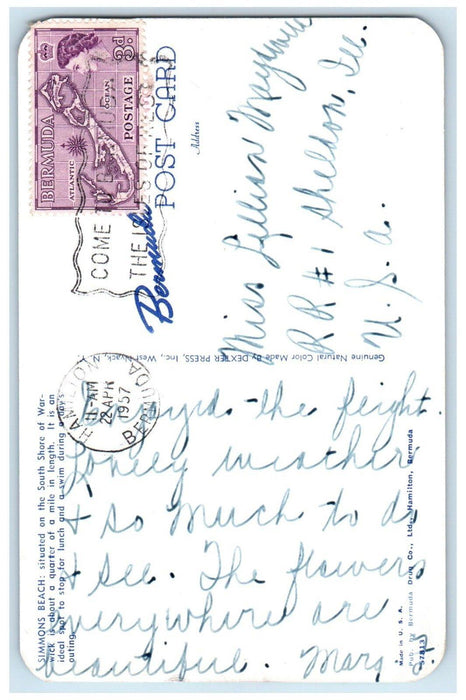 BERMUDA
3d.
ATLANTIC
OCEAN
POSTAGE
COME TO BERMUDA
THE ISLES OF REST
POST CARD
Bermuda
Address
Miss Lillian
RR #1 Sheldon, Ill.
U. S. a.
Genuine Natural Color Made By DEXTER PRESS, Inc., West Nyack, N. Y.
HAMILTON
11-AM
22 APR
1957
BERMUDA
SIMMONS BEACH: situated on the South Shore of War-
wick is about a quarter of a mile in length. It is an
ideal spot to stop for lunch and a swim during a day's
outing.
Enjoyed the flight.
Lovely weather
& so much to do
& see. The flowers
everywhere are
beautiful. Marg. J
Made in U. S. A.
Pub. by Bermuda Drug Co., Ltd., Hamilton, Bermuda
52813